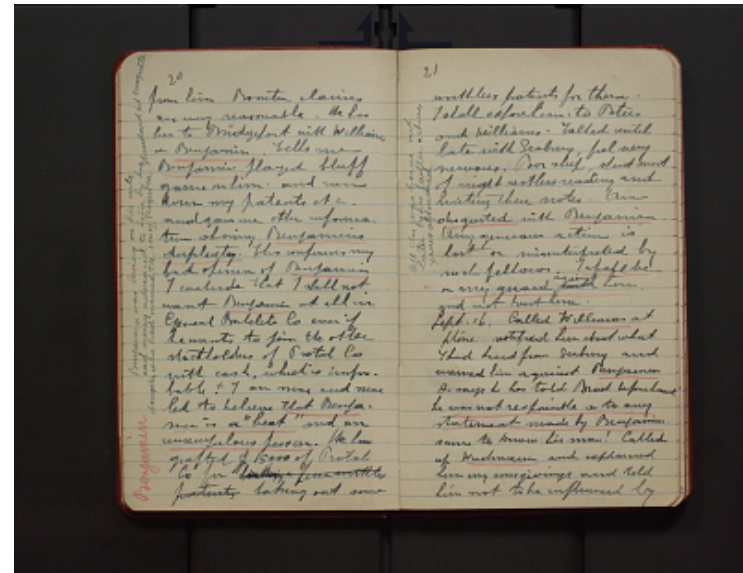 20
from him Boonton claims
are very reasonable. He has
been to Bridgeport with Williams
+ Benjamin. Tells me
Benjamin played bluff
game on him. and ran
down my patents etc.
and gave me other informa-
tion showing Benjamin's
duplicity. This confirms my
bad opinion of Benjamin
I conclude that I shall not
want Benjamin at all in
General Bakelite Co even if
he wants to join the other
stockholders of Protal Co
with cash, which is impro-
bable. I am more and more
led to believe that Benja-
min is a "beat" and an
unscrupulous person. He has
grafted $ 15000 of Protal
Co for
patents taking out some
Benjamin
Benjamin was living on his wife
21
worthless patents for them.
I shall expose him to Peters
and Williams. Talked until
late with Seabury, feel very
nervous. Poor sleep, spend most
of night restless reading and
writing these notes. Am
disgusted with Benjamin
Any generous action is
lost or misinterpreted by
such fellows. I shall be
on my guard against him
and not trust him.
Sept. 16. Called Williams at
phone notified him about what
I had heard from Seabury and
warned him against Benjamin
He says he has told Broid beforehand
he was not responsible as to any
statement made by Benjamin
since he knew his man! Called
up Wiechmann and explained
him my misgivings and told
him not to be influenced by